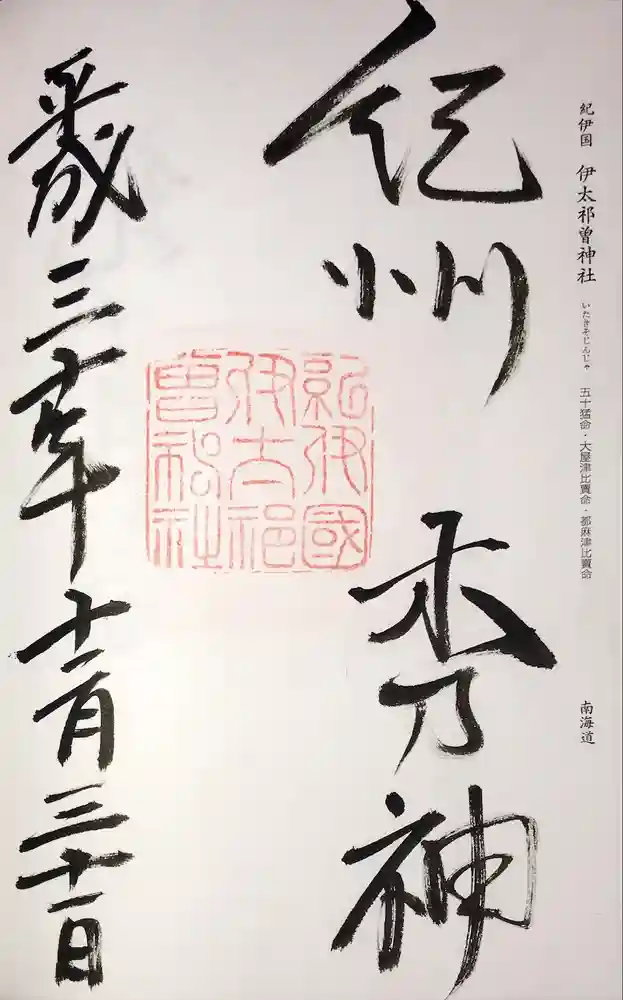 紀伊国 伊太祁曽神社 いたきそじんじゃ 五十猛命・大屋津比賣命・都麻津比賣命 南海道
紀州 木乃神
紀伊國
伊太祁
曽神社
平成三十年十二月三十一日